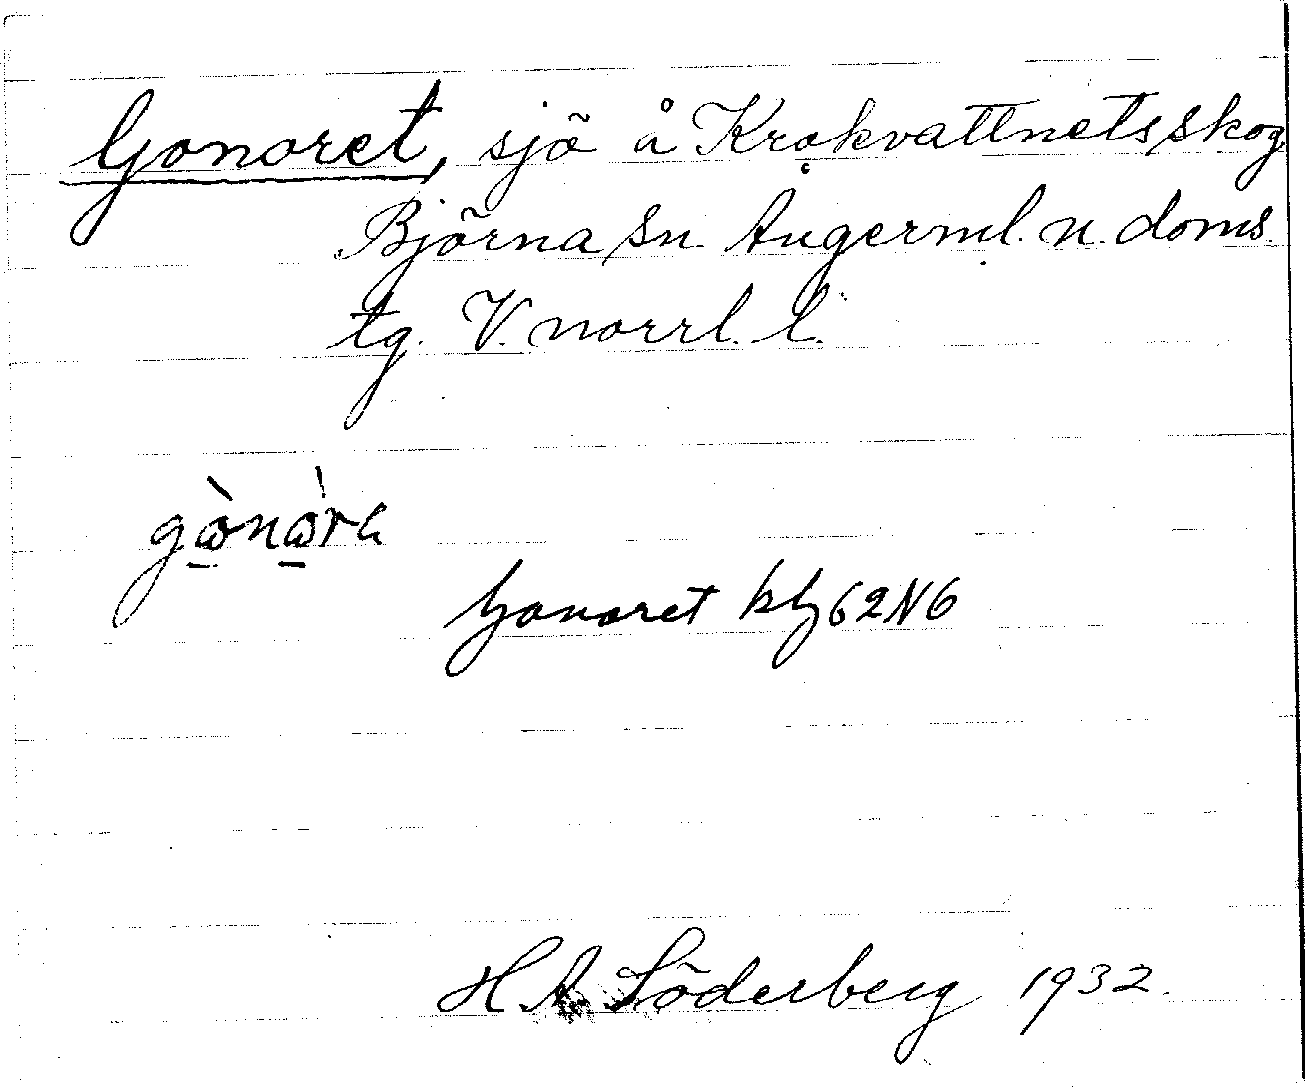 Gonoret, sjö å Krokvattnets skog
Björna sn. Ångerml. n. doms.
tg. V. norrl. l.
gὼnὼrɛ
Gonoret kbl 62 N6
H A Söderberg 1932.